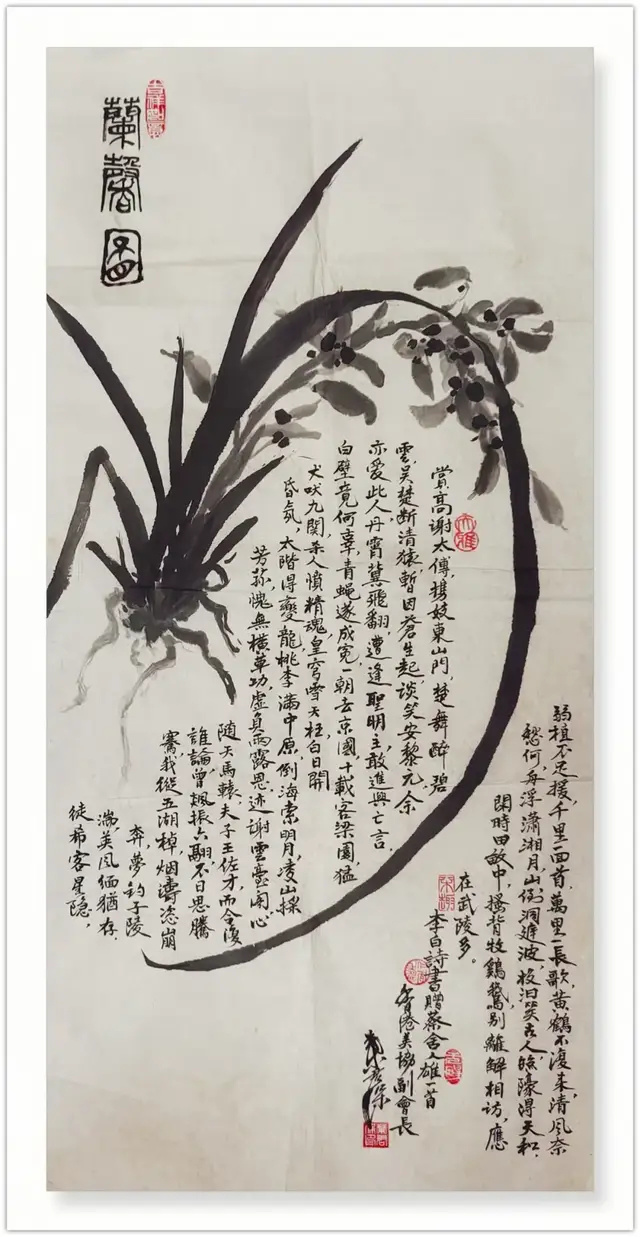 蘭馨圖
賞高謝太傅，携妓東山門，楚舞醉碧
雲，吴楚断清猿，暫因蒼生起，談笑安黎元，余
亦爱此人，丹霄冀飛翻，遭逢聖明主敢進興亡言，
白壁竟何辜，青蝇遂成冤，一朝去京國，十載客梁園，猛
犬吠九関，杀人憤精魂，皇穹雪天枉白日開
昏氛，太階得夔龍，桃李滿中原，倒海索明月，凌山採
芳荪，愧無横草功，虚負雨露恩，迹謝雲臺閣，心
随天馬轅，夫子王佐才，而今復
誰論，曾飆振六翮，不日思騰
騫我縱五湖棹，烟濤恣崩
奔，夢釣子陵
湍，英风缅猶存，
徒希客星隐，
弱植不足援，千里一回首，萬里一長歌，黄鶴不復来，清风奈
愁何，舟浮瀟湘月，山倒洞庭波，投汨笑古人，臨濠得天和，
閑時田畝中，搔背牧鷄鵝，别離解相访，應
在武陵多。
李白詩書贈蔡舍人雄一首
香港美協副會長